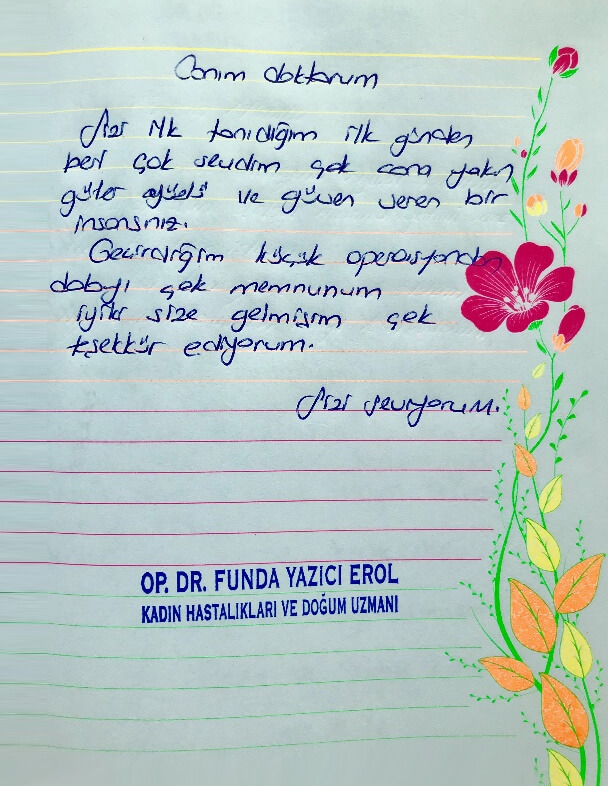 Canım doktorum
Sizi ilk tanıdığım ilk günden
beri çok sevdim çok cana yakın
güler yüzlü ve güven veren bir
insansınız.
Geçirdiğim küçük operasyondan
dolayı çok memnunum
iyiki size gelmişim çok
teşekkür ediyorum.
Sizi seviyorum.
OP. DR. FUNDA YAZICI EROL
KADIN HASTALIKLARI VE DOĞUM UZMANI